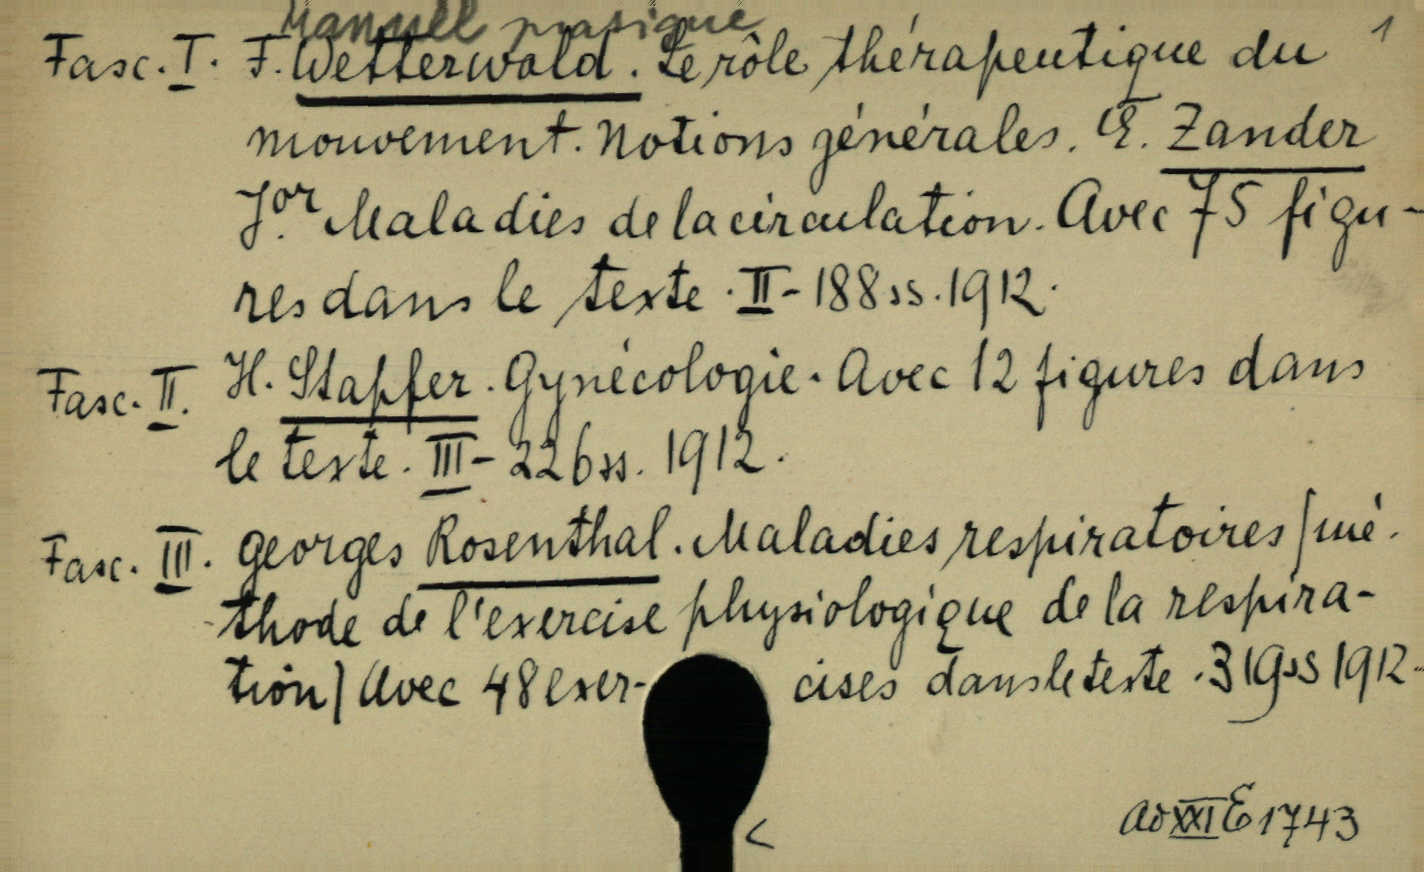 Manuell pratique
1
Fasc. I. F. Wetterwald. Le rôle thérapeutique du
mouvement. Notions générales. E. Zander
Jor. Maladies de la circulation. Avec 75 figu-
res dans le texte. II-188 ss. 1912.
Fasc. II. H. Stapfer. Gynécologie. Avec 12 figures dans
le texte. III-226 ss. 1912.
Fasc. III. Georges Rosenthal. Maladies respiratoires (mé-
thode de l'exercise physiologique de la respira-
tion) Avec 48 exer- cises dans le texte. 319 ss 1912.
ad XXI E 1743